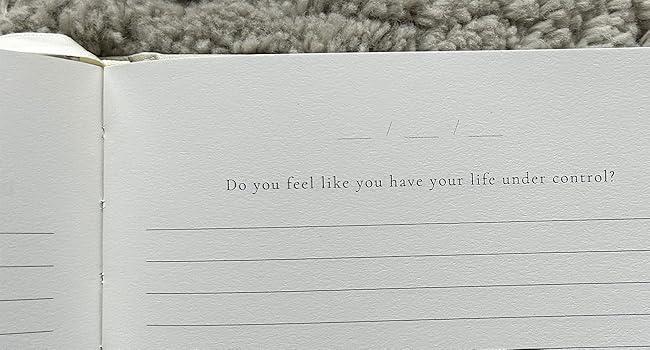 __ / __ / __
Do you feel like you have your life under control?